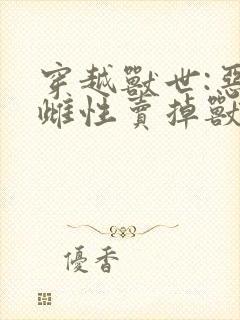 穿越獸世:惡
雌性賣掉獸
優香